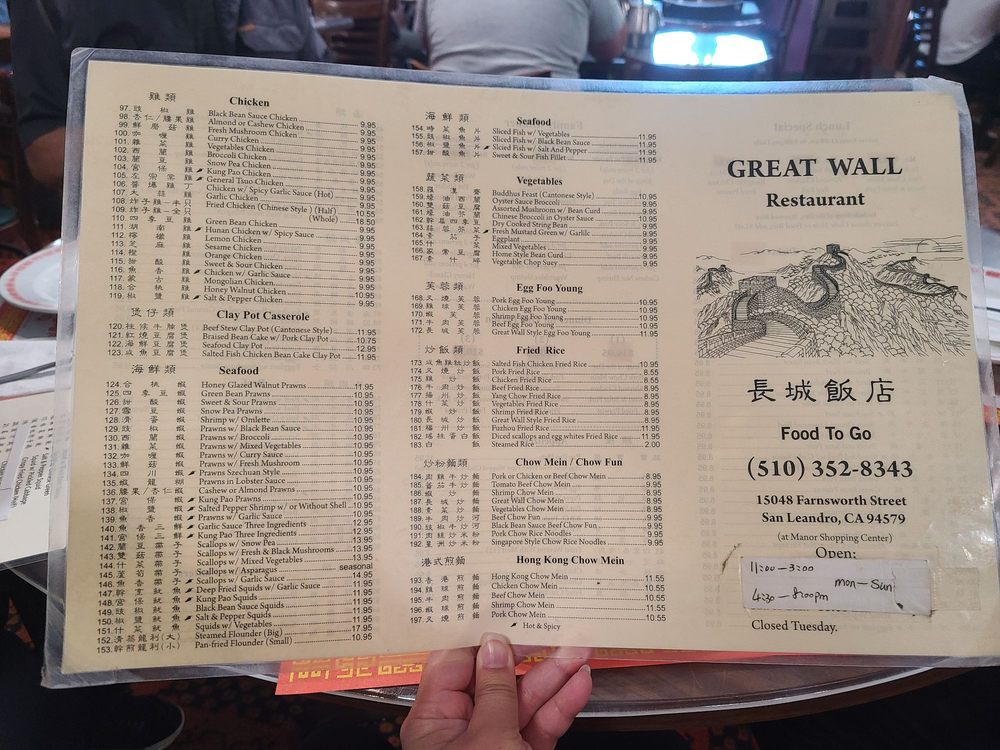 雞類 Chicken
97. 豉椒雞 Black Bean Sauce Chicken 9.95
98. 杏仁/腰果雞 Almond or Cashew Chicken 9.95
99. 鮮蘑菇雞 Fresh Mushroom Chicken 9.95
100. 咖喱雞 Curry Chicken 9.95
101. 雜菜雞 Vegetables Chicken 9.95
102. 西蘭雞 Broccoli Chicken 9.95
103. 蘭豆雞 Snow Pea Chicken 9.95
104. 宮保雞 Kung Pao Chicken 9.95
105. 左宗棠雞 General Tsuo Chicken 9.95
106. 醬爆雞丁 Chicken w/ Spicy Garlic Sauce (Hot) 9.95
107. 大蒜雞 Garlic Chicken 9.95
108. 炸子雞-半只 Fried Chicken (Chinese Style) (Half) 10.55
109. 炸子雞-全只 (Whole) 18.50
110. 四季豆雞 Green Bean Chicken 9.95
111. 湖南雞 Hunan Chicken w/ Spicy Sauce 9.95
112. 檸檬雞 Lemon Chicken 9.95
113. 芝麻雞 Sesame Chicken 9.95
114. 橙雞 Orange Chicken 9.95
115. 甜酸雞 Sweet & Sour Chicken 9.95
116. 魚香雞 Chicken w/ Garlic Sauce 9.95
117. 蒙古雞 Mongolian Chicken 9.95
118. 合桃雞 Honey Walnut Chicken 9.95
119. 椒鹽雞 Salt & Pepper Chicken 9.95
煲仔類 Clay Pot Casserole
120. 柱侯牛腩煲 Beef Stew Clay Pot (Cantonese Style) 11.95
121. 紅燒豆腐煲 Braised Bean Cake w/ Pork Clay Pot 10.75
122. 海鮮豆腐煲 Seafood Clay Pot 12.95
123. 咸魚豆腐煲 Salted Fish Chicken Bean Cake Clay Pot 11.95
海鮮類 Seafood
124. 合桃蝦 Honey Glazed Walnut Prawns 11.95
125. 四季豆蝦 Green Bean Prawns 10.95
126. 甜酸蝦 Sweet & Sour Prawns 10.95
127. 雪豆蝦 Snow Pea Prawns 10.95
128. 滑蛋蝦 Shrimp w/ Omlette 10.95
129. 豉椒蝦 Prawns w/ Black Bean Sauce 10.95
130. 西蘭蝦 Prawns w/ Broccoli 10.95
131. 雜菜蝦 Prawns w/ Mixed Vegetables 10.95
132. 咖喱蝦 Prawns w/ Curry Sauce 10.95
133. 鮮菇蝦 Prawns w/ Fresh Mushroom 10.95
134. 四川蝦 Prawns Szechuan Style 10.95
135. 蝦龍糊 Prawns in Lobster Sauce 10.95
136. 腰果/杏仁蝦 Cashew or Almond Prawns 10.95
137. 宮保蝦 Kung Pao Prawns 10.95
138. 椒鹽蝦 Salted Pepper Shrimp w/ or Without Shell 10.95
139. 魚香蝦 Prawns w/ Garlic Sauce 10.95
140. 魚香三鮮 Garlic Sauce Three Ingredients 12.95
141. 宮保三鮮 Kung Pao Three Ingredients 12.95
142. 蘭豆帶子 Scallops w/ Snow Pea 13.95
143. 雙菇帶子 Scallops w/ Fresh & Black Mushrooms 13.95
144. 什菜帶子 Scallops w/ Mixed Vegetables 13.95
145. 蘆筍帶子 Scallops w/ Asparagus seasonal
146. 魚香帶子 Scallops w/ Garlic Sauce 14.95
147. 幹烹魷魚 Deep Fried Squids w/ Garlic Sauce 11.95
148. 宮保魷魚 Kung Pao Squids 11.95
149. 豉椒魷魚 Black Bean Sauce Squids 11.95
150. 椒鹽魷魚 Salt & Pepper Squids 11.95
151. 什菜魷魚 Squids w/ Vegetables 11.95
152. 清蒸龍利(大) Steamed Flounder (Big) 17.95
153. 幹煎龍利(小) Pan-fried Flounder (Small) 10.95
海鮮類 Seafood
154. 時菜魚片 Sliced Fish w/ Vegetables 11.95
155. 豉椒魚片 Sliced Fish w/ Black Bean Sauce 11.95
156. 椒鹽魚片 Slcied Fish w/ Salt And Pepper 11.95
157. 甜酸魚片 Sweet & Sour Fish Fillet 11.95
蔬菜類 Vegetables
158. 羅漢齋 Buddhus Feast (Cantonese Style) 10.95
159. 蠔油西蘭 Oyster Sauce Broccoli 9.95
160. 雙菇豆腐 Assorted Mushroom w/ Bean Curd 9.95
161. 蠔油芥蘭 Chinese Broccoli in Oyster Sauce 10.95
162. 幹扁四季豆 Dry Cooked String Bean 9.95
163. 蒜蓉芥菜 Fresh Mustard Green w/ Garlilc 9.95
164. 茄子 Eggplant 9.95
165. 什菜 Mixed Vegetables 9.95
166. 家常豆腐 Home Style Bean Curd 9.95
167. 素什碎 Vegetable Chop Suey 9.95
芙蓉類 Egg Foo Young
168. 叉燒芙蓉 Pork Egg Foo Young 10.95
169. 雞球芙蓉 Chicken Egg Foo Young 10.95
170. 蝦芙蓉 Shrimp Egg Foo Young 10.95
171. 牛肉芙蓉 Beef Egg Foo Young 10.95
172. 長城芙蓉 Great Wall Style Egg Foo Young 11.95
炒飯類 Fried Rice
173. 咸魚雞粒炒飯 Salted Fish Chicken Fried Rice 10.95
174. 叉燒炒飯 Pork Fried Rice 8.55
175. 雞炒飯 Chicken Fried Rice 8.55
176. 牛肉炒飯 Beef Fried Rice 9.95
177. 揚州炒飯 Yang Chow Fried Rice 9.95
178. 什菜炒飯 Vegetables Fried Rice 9.95
179. 蝦炒飯 Shrimp Fried Rice 9.95
180. 長城炒飯 Great Wall Style Fried Rice 9.95
181. 福州炒飯 Fuzhou Fried Rice 11.95
182. 瑤柱蛋白飯 Diced scallops and egg whites Fried Rice 11.95
183. 白飯 Steamed Rice 2.00
炒粉麵類 Chow Mein / Chow Fun
184. 肉雞牛炒麵 Pork or Chicken or Beef Chow Mein 8.95
185. 蕃茄牛炒麵 Tomato Beef Chow Mein 9.95
186. 蝦炒麵 Shrimp Chow Mein 9.95
187. 長城炒麵 Great Wall Chow Mein 9.95
188. 素菜炒麵 Vegetables Chow Mein 8.95
189. 牛肉炒河 Beef Chow Fun 9.95
190. 豉椒牛炒河 Black Bean Sauce Beef Chow Fun 9.95
191. 肉絲炒米粉 Pork Chow Rice Noodles 9.95
192. 星洲炒米粉 Singapore Style Chow Rice Noodles 9.95
港式煎麵 Hong Kong Chow Mein
193. 香港煎麵 Hong Kong Chow Mein 11.55
194. 雞球煎麵 Chicken Chow Mein 10.55
195. 牛肉煎麵 Beef Chow Mein 10.55
196. 蝦球煎麵 Shrimp Chow Mein 11.55
197. 叉燒煎麵 Pork Chow Mein 10.55
Hot & Spicy
GREAT WALL
Restaurant
長城飯店
Food To Go
(510) 352-8343
15048 Farnsworth Street
San Leandro, CA 94579
(at Manor Shopping Center)
Open:
11:00 - 3:00
mon - Sun
4:30 - 8:00pm
Closed Tuesday.